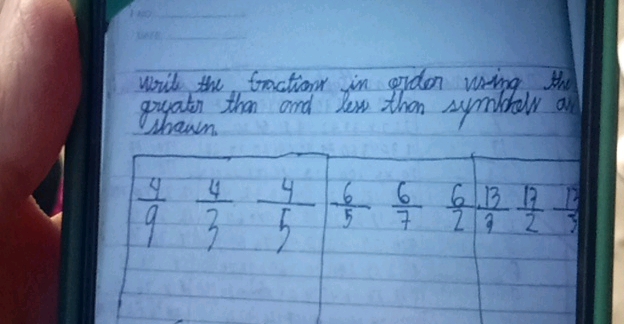 write the fractions in order using the
greater than and less than symbols as
shown
4/9 4/3 4/5 6/5 6/7 6/2 13/9 13/2